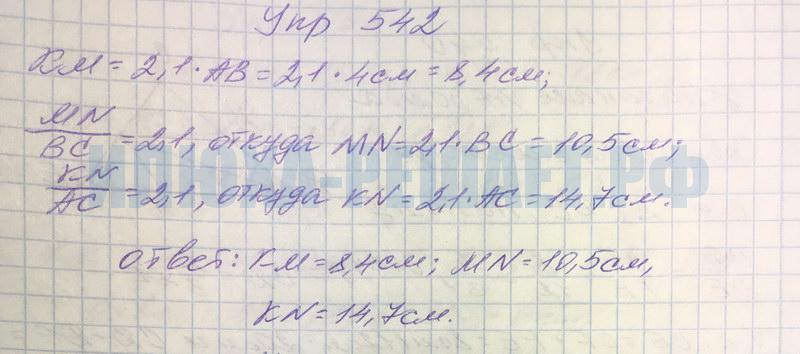 Упр 542
КМ = 2,1 · АВ = 2,1 · 4см = 8,4см;
MN/BC = 2,1, откуда MN = 2,1 · BC = 10,5см;
KN/AC = 2,1, откуда KN = 2,1 · AC = 14,7см.
ответ: КМ = 8,4см; MN = 10,5см,
KN = 14,7см.
ИЛЮХА-РЕШАЕТ.РФ